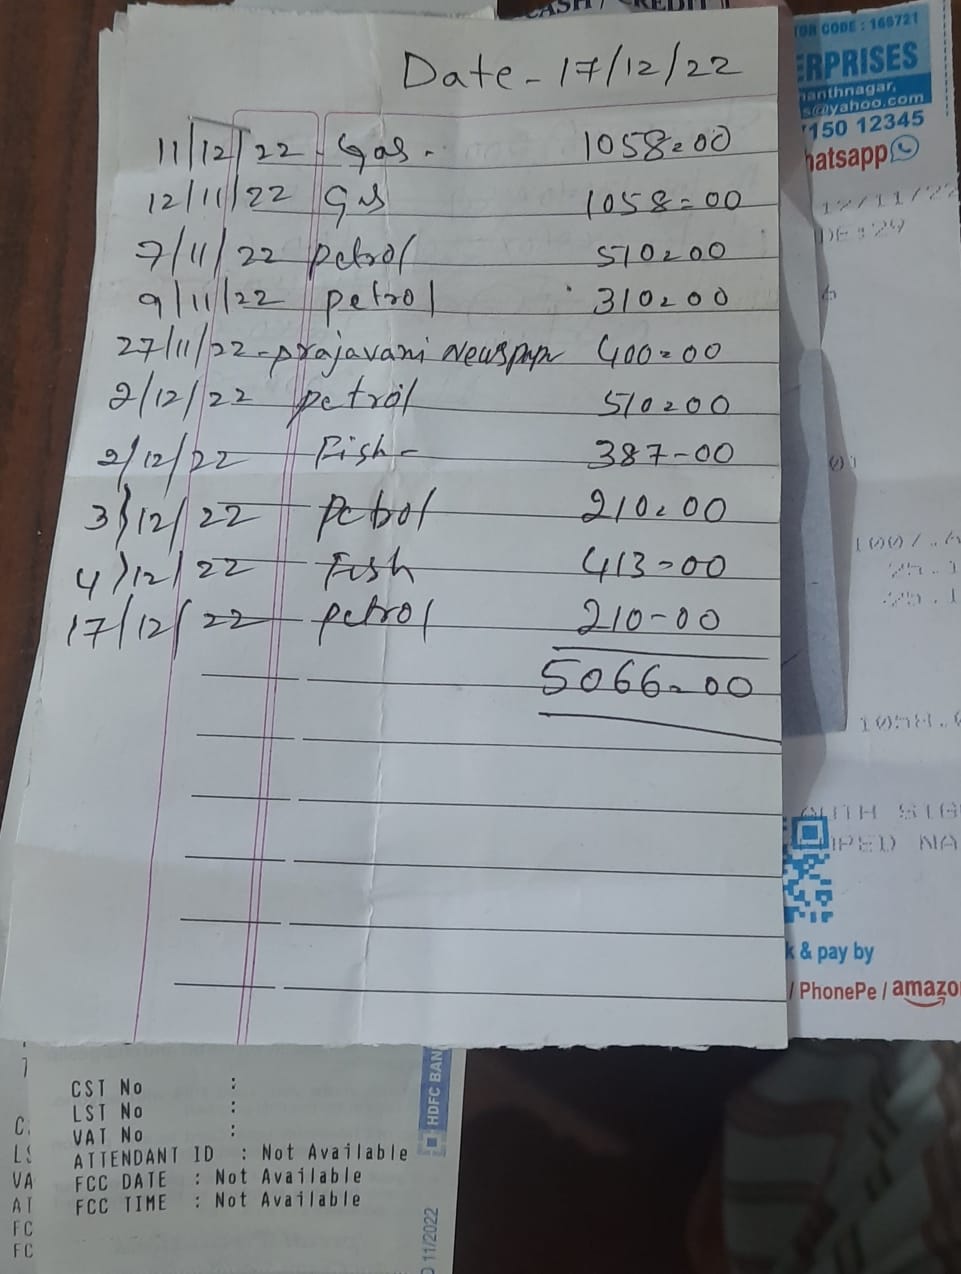 CASH / CREDIT
CODE : 165721
ERPRISES
anthnagar,
@yahoo.com
150 12345
hatsapp
Date - 17/12/22
11/12/22 - Gas - 1058=00
12/11/22 Gas 1058=00
7/11/22 petrol 510=00
9/11/22 petrol 310=00
27/11/22 - prajavani Newspapr 400=00
2/12/22 petrol 510=00
2/12/22 Fish - 387-00
3/12/22 petrol 210=00
4/12/22 Fish 413=00
17/12/22 petrol 210-00
5066=00
12/11/22
1058.
& pay by
/ PhonePe / amazo
CST No :
LST No :
VAT No :
ATTENDANT ID : Not Available
FCC DATE : Not Available
FCC TIME : Not Available
C
LS
VA
AT
FC
FC
HDFC BAN
11/2022